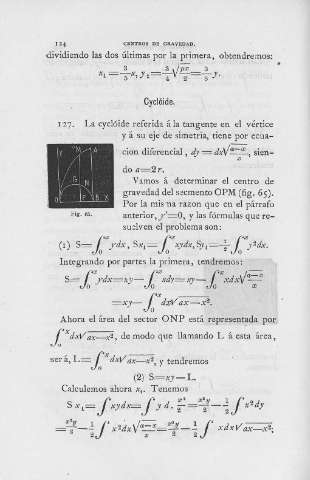 124 CENTROS DE GRAVEDAD.
dividiendo las dos últimas por la primera, obtendremos:
x₁ = 3/5 x, y₁ = 3/4 √(px/2) = 3/5 y.
Cyclóide.
127. La cyclóide referida á la tangente en el vértice
y á su eje de simetria, tiene por ecua-
cion diferencial, dy = dx√((a−x)/x), sien-
do a=2r.
Vamos á determinar el centro de
gravedad del secmento OPM (fig. 65).
Por la misma razon que en el párrafo
anterior, y'=0, y las fórmulas que re-
suelven el problema son:
Fig. 65.
(1) S=∫₀ˣ ydx, Sx₁=∫₀ˣ xydx, Sy₁=1/2 ∫₀ˣ y²dx.
Integrando por partes la primera, tendremos:
S=∫₀ˣ ydx=xy−∫₀ˣ xdy=xy−∫₀ˣ xdx√((a−x)/x)
=xy−∫₀ˣ dx√(ax−x²).
Ahora el área del sector ONP está representada por
∫₀ˣ dx√(ax−x²), de modo que llamando L á esta área,
será, L=∫₀ˣ dx√(ax−x²), y tendremos
(2) S=xy−L.
Calculemos ahora x₁. Tenemos
S x₁=∫ xydx=∫ y d. x²/2 = x²y/2 − 1/2 ∫ x²dy
= x²y/2 − 1/2 ∫ x²dx√((a−x)/x) = x²y/2 − 1/2 ∫ xdx√(ax−x²);